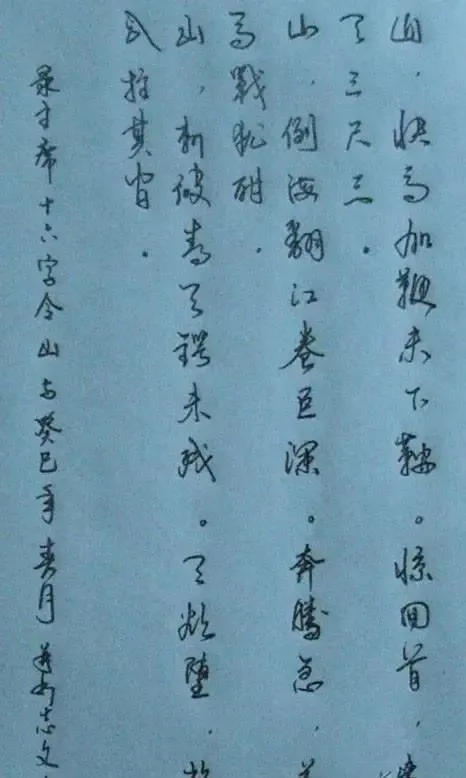 山，快马加鞭未下鞍。惊回首，
天三尺三。
山，倒海翻江卷巨澜。奔腾急，
马戰犹酣。
山，刺破青天锷未残。天欲堕，
以拄其间。
录主席十六字令山 癸巳年春月 志文